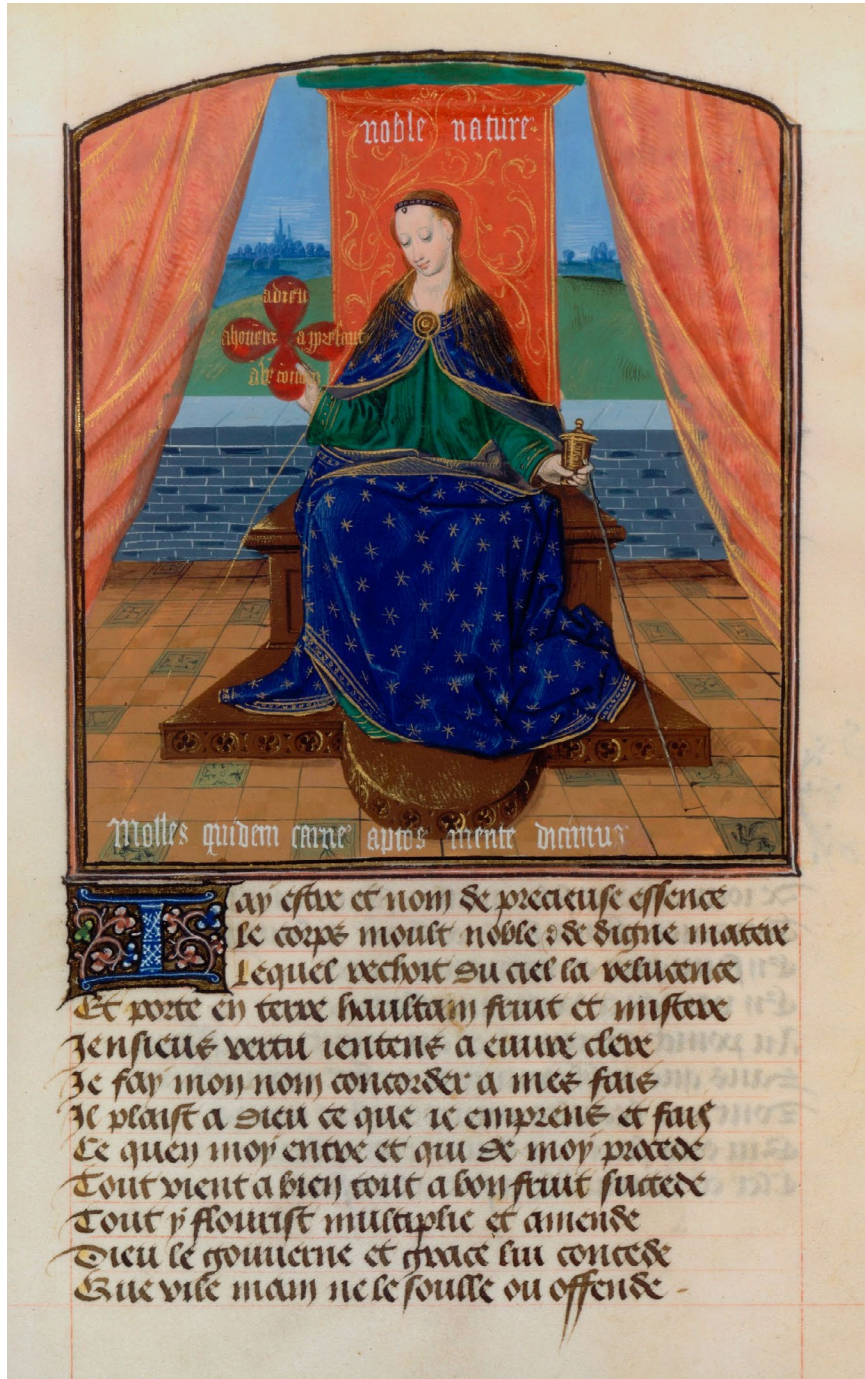 noble nature
adieu
ahoneur a
Molles quidem carne aptos mente dicimus
Iay estre et nom de precieuse essence
Le corps moult noble : de digne matere
Lequel rechoit du ciel la relucence
Et porte en terre haultain fruit et mistere
Jensieus vertu ientens a euure clere
Je fay mon nom concorder a mes fais
Il plaist a dieu ce que ie emprens et fais
Ce quen moy entre et qui de moy procede
Tout vient a bien tout a bon fruit succede
Tout y flourist multiplie et amende
Dieu le gouuerne et grace lui concede
Que vile main ne le soulle ou offende -